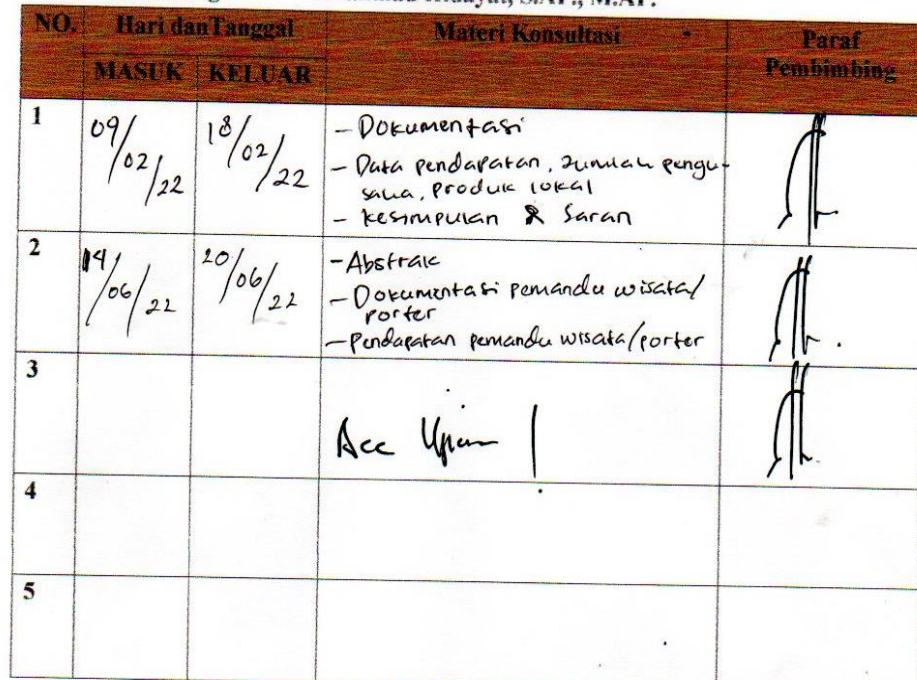 Hidayat, S.AP., M.AP.
NO. Hari dan Tanggal Materi Konsultasi Paraf Pembimbing
MASUK KELUAR
1 09/02/22 18/02/22 - Dokumentasi
- Data pendapatan, Jumlah pengu-
saha, produk lokal
- Kesimpulan & Saran
2 14/06/22 20/06/22 - Abstrak
- Dokumentasi pemandu wisata/
porter
- Pendapatan pemandu wisata/porter
3 Acc Ujian
4
5